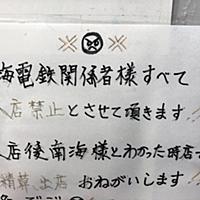 海電鉄関係者様すべて
店禁止とさせて頂きます
店後南海様とわかった時店
精算出店おねがいします